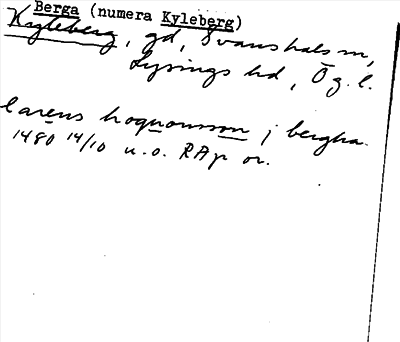 Berga (numera Kyleberg)
Kagleberg, gd, Svanshals sn,
Lysings hd, Ög. l.
larens hoquonsson j bergha.
1480 14/10 u.o. RAp or.